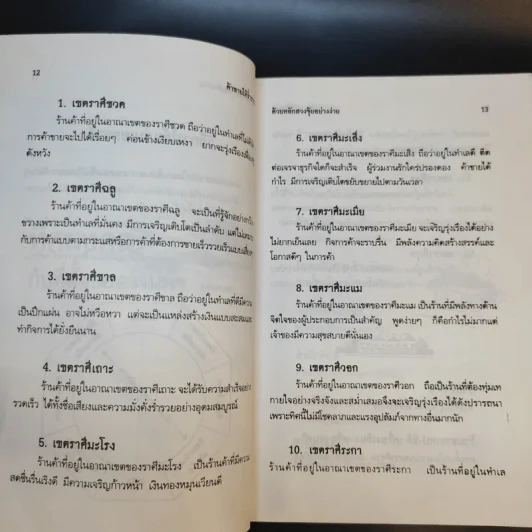 12
ค้าขายให้ร่ำรวย
1. เขตราศีชวด
ร้านค้าที่อยู่ในอาณาเขตของราศีชวด ถือว่าอยู่ในทำเลที่
การค้าขายจะไปได้เรื่อยๆ ค่อนข้างเงียบเหงา ยากจะรุ่งเรือง
ดังหวัง
2. เขตราศีฉลู
ร้านค้าที่อยู่ในอาณาเขตของราศีฉลู จะเป็นที่รู้จักอย่าง
ขวางเพราะเป็นทำเลที่มั่นคง มีการเจริญเติบโตเป็นลำดับ แต่ไม่
กับการค้าแบบตามกระแสหรือการค้าที่ต้องการขายเร็วรวยเร็วแบบ
3. เขตราศีขาล
ร้านค้าที่อยู่ในอาณาเขตของราศีขาล ถือว่าอยู่ในทำเลที่ดีมีความ
เป็นปึกแผ่น อาจไม่หวือหวา แต่จะเป็นแหล่งสร้างเงินแบบสะสมและ
ทำกิจการได้ยั่งยืนนาน
4. เขตราศีเถาะ
ร้านค้าที่อยู่ในอาณาเขตของราศีเถาะ จะได้รับความสำเร็จอย่าง
รวดเร็ว ได้ทั้งชื่อเสียงและความมั่งคั่งร่ำรวยอย่างอุดมสมบูรณ์
5. เขตราศีมะโรง
ร้านค้าที่อยู่ในอาณาเขตของราศีมะโรง เป็นร้านค้าที่มีความ
สดชื่นรื่นเริงดี มีความเจริญก้าวหน้า เงินทองหมุนเวียนดี
ด้วยหลักฮวงจุ้ยอย่างง่าย
13
6. เขตราศีมะเส็ง
ร้านค้าที่อยู่ในอาณาเขตของราศีมะเส็ง ถือว่าอยู่ในทำเลดี ติด
ต่อเจรจาธุรกิจใดก็จะสำเร็จ ผู้ร่วมงานรักใคร่ปรองดอง ค้าขายได้
กำไร มีการเจริญเติบโตขยับขยายไปตามวันเวลา
7. เขตราศีมะเมีย
ร้านค้าที่อยู่ในอาณาเขตของราศีมะเมีย จะเจริญรุ่งเรืองได้อย่าง
ไม่ยากเย็นเลย กิจการค้าจะราบรื่น มีพลังความคิดสร้างสรรค์และ
โอกาสดีๆ ในการค้า
8. เขตราศีมะแม
ร้านค้าที่อยู่ในอาณาเขตของราศีมะแม เป็นร้านที่มีพลังทางด้าน
จิตใจของผู้ประกอบการเป็นสำคัญ พูดง่ายๆ ก็คือกำไรไม่มากแต่
เจ้าของมีความสุขสบายดีนั่นเอง
9. เขตราศีวอก
ร้านค้าที่อยู่ในอาณาเขตของราศีวอก ถือเป็นร้านที่ต้องทุ่มเท
กายใจอย่างจริงจังและสม่ำเสมอจึงจะเจริญรุ่งเรืองได้ดังปรารถนา
เพราะทิศนี้ไม่มีโชคลาภและแรงอุปถัมภ์จากทางอื่นมากนัก
10. เขตราศีระกา
ร้านค้าที่อยู่ในอาณาเขตของราศีระกา เป็นร้านที่อยู่ในทำเล